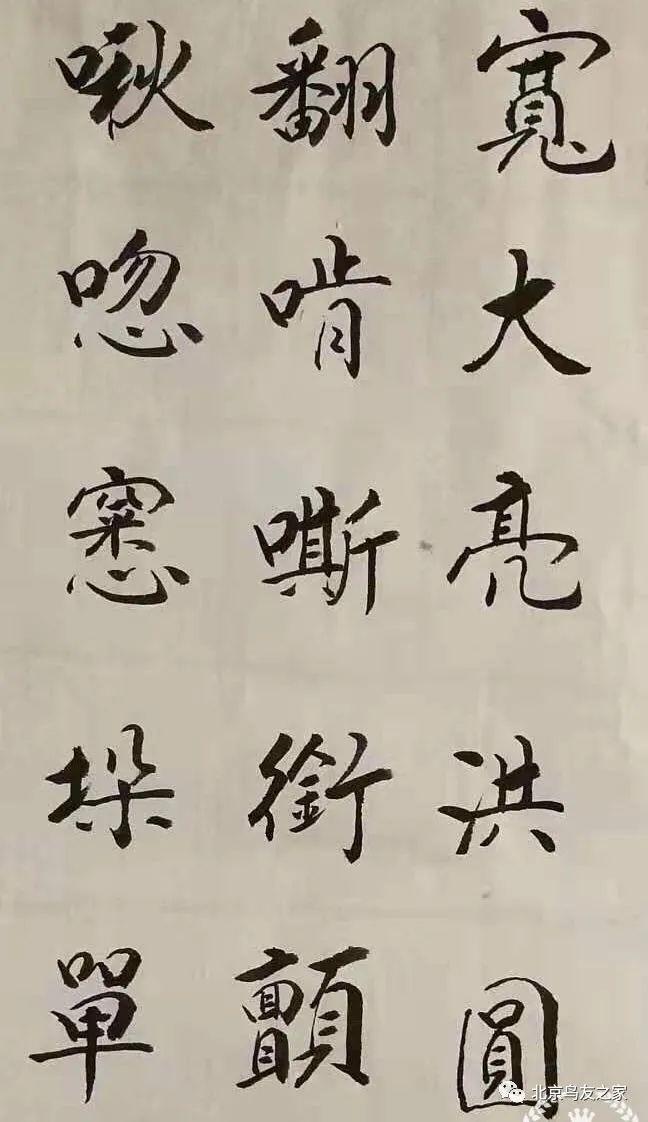 寬大亮洪圓
翻啃嘶銜顫
啾唿窸垛單
北京鸟友之家